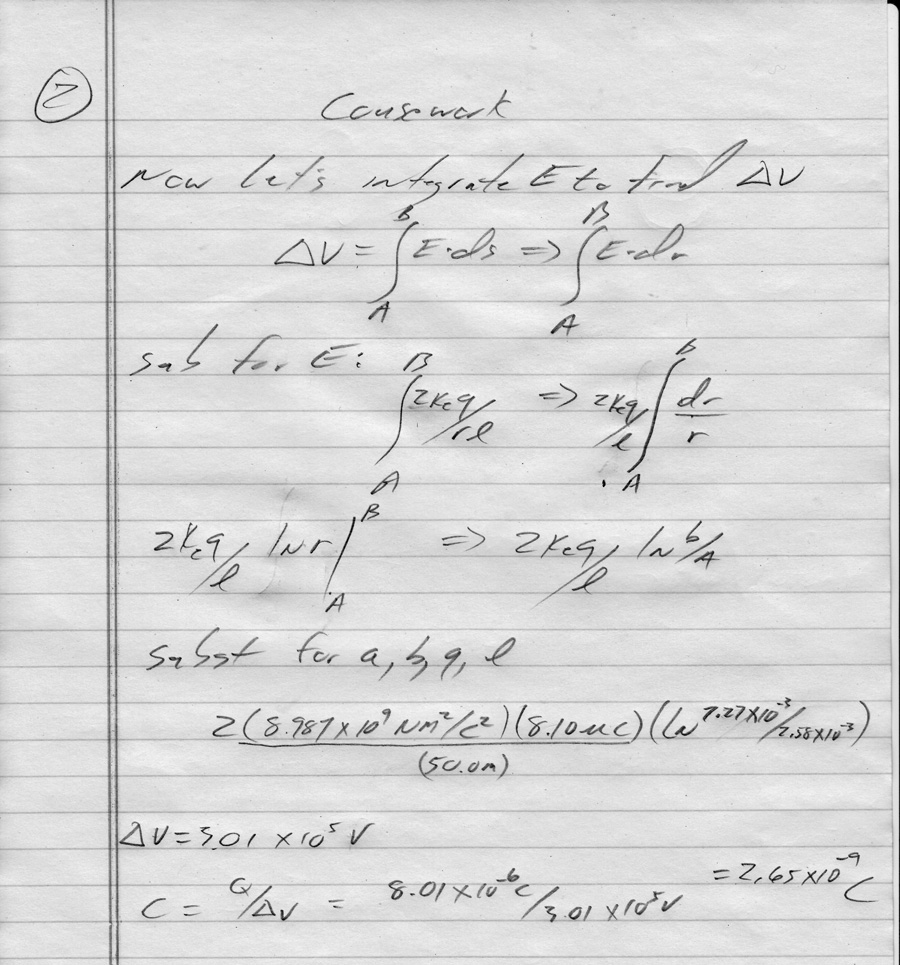 2
Causework
Now let's integrate E to find ΔV
ΔV = ∫_A^B E·ds => ∫_A^B E·dr
sub for E:
∫_A^B 2Keq/rl => 2Keq/l ∫_A^b dr/r
2Keq/l ln r |_A^B => 2Keq/l ln b/A
subst for a, b, q, l
2(8.987×10^9 Nm^2/c^2)(8.10 uC)(ln 7.27×10^-3/2.58×10^-3)
(50.0m)
ΔV = 3.01 ×10^5 V
C = Q/ΔV = 8.01×10^-6 C/3.01 ×10^5 V = 2.65×10^-9 C